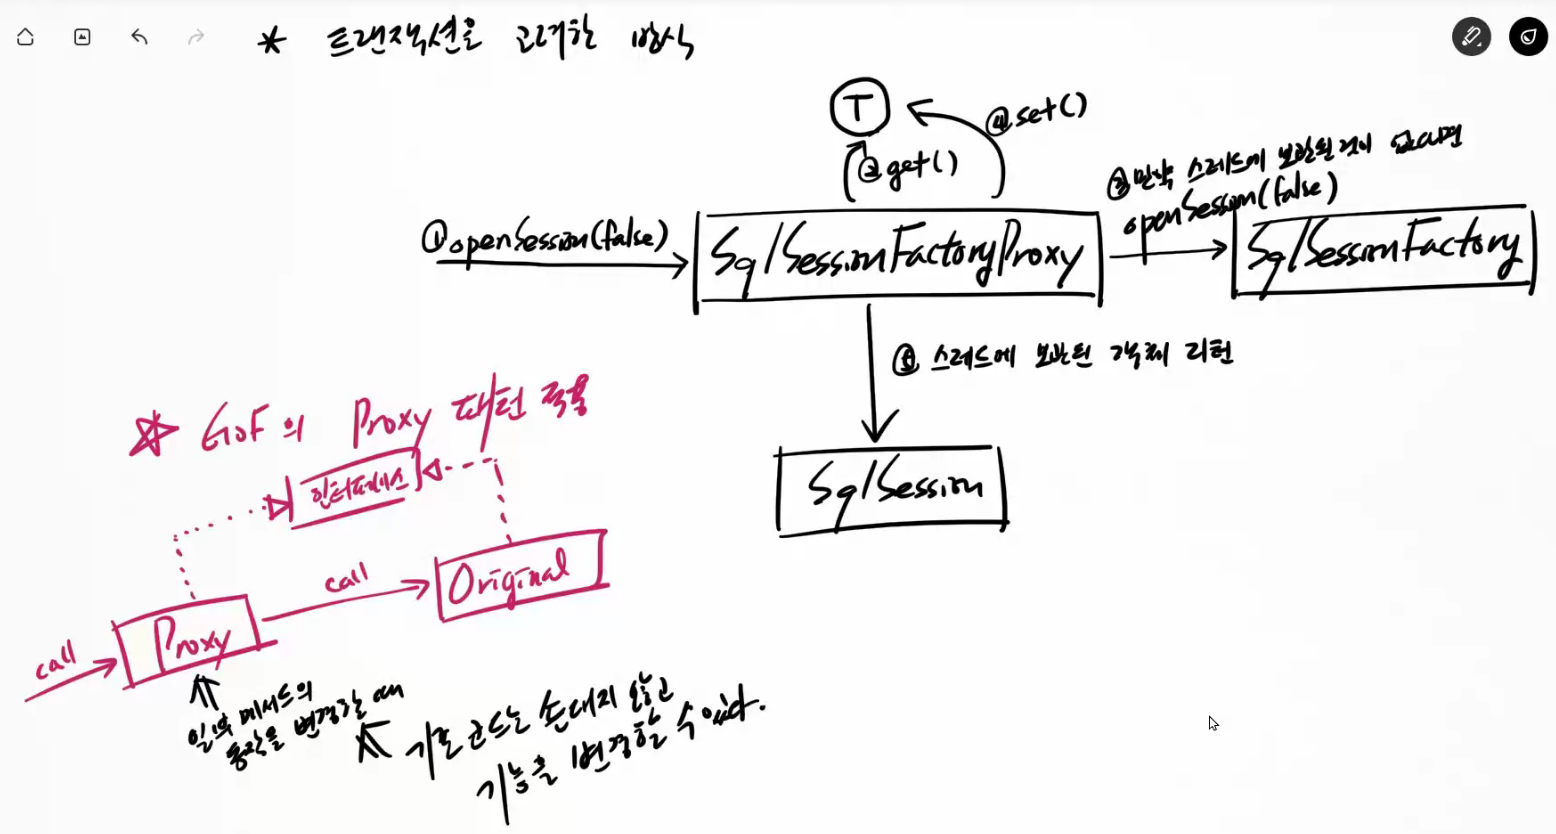 * 트랜잭션을 고려한 방식
T
④ set()
② get()
③ 만약 스레드에 보관된 것이 없다면
openSession(false)
① openSession(false)
SqlSessionFactoryProxy
SqlSessionFactory
⑤ 스레드에 보관된 객체 리턴
SqlSession
☆ GoF의 Proxy 패턴 적용
인터페이스
call
Original
call
Proxy
일부 메서드의
동작을 변경할 때
기존 코드는 손대지 않고
기능을 변경할 수 있다.